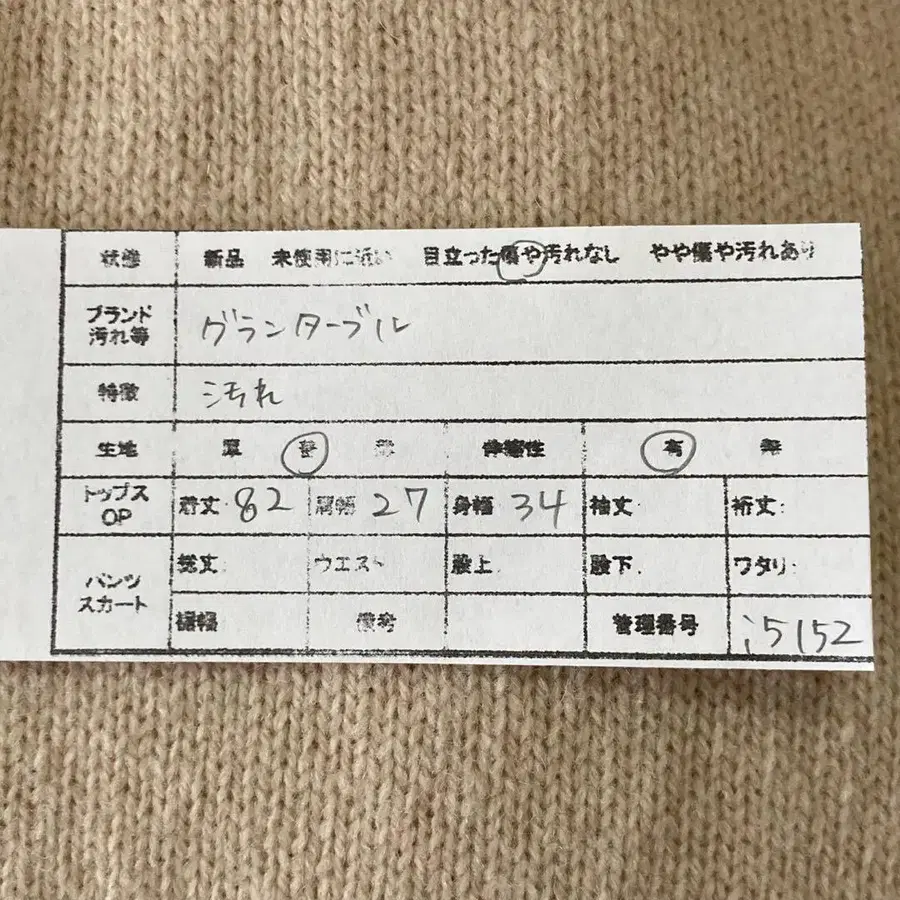 状態 新品 未使用に近い 目立った傷や汚れなし やや傷や汚れあり
ブランド
汚れ等
グランターブル
特徴 汚れ
生地 厚 普 薄 伸縮性 有 無
トップス
OP
着丈:82 肩幅 27 身幅 34 袖丈: 裄丈:
パンツ
スカート
総丈: ウエスト 股上. 股下. ワタリ:
裾幅 備考 管理番号 i5152